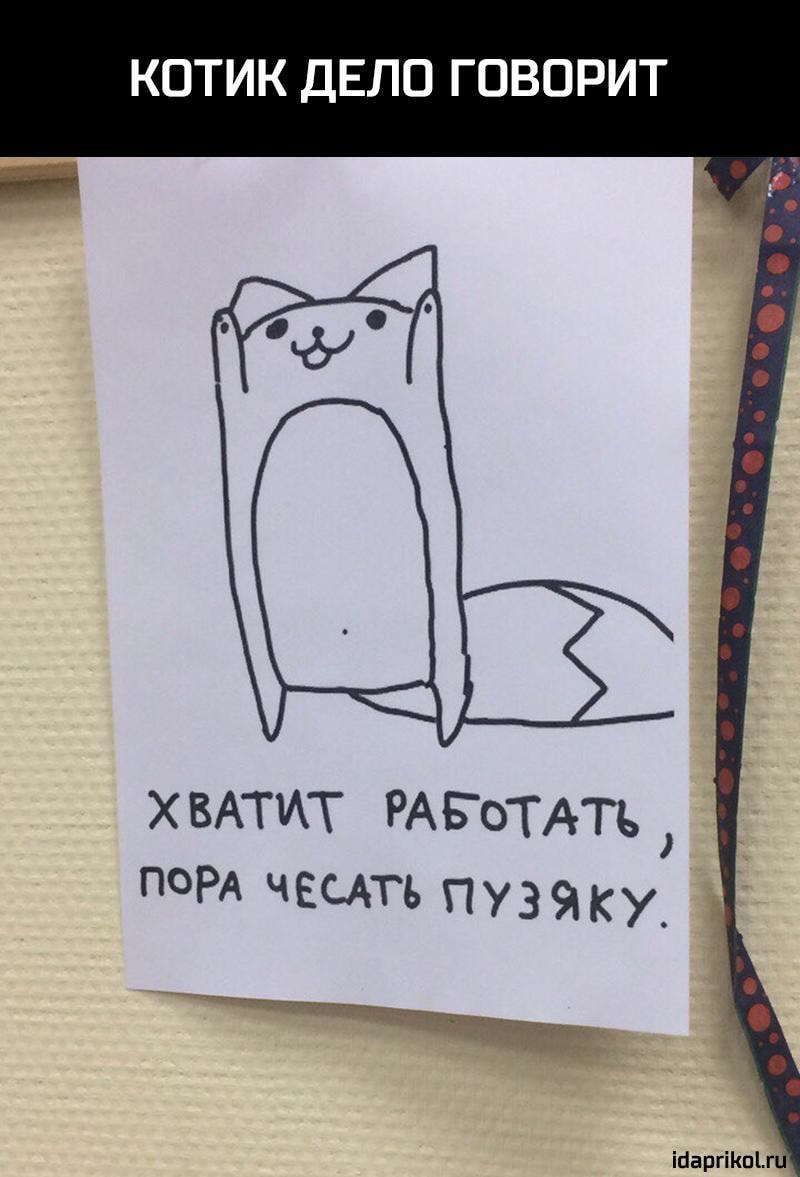 КОТИК ДЕЛО ГОВОРИТ
ХВАТИТ РАБОТАТЬ,
ПОРА ЧЕСАТЬ ПУЗЯКУ.
idaprikol.ru